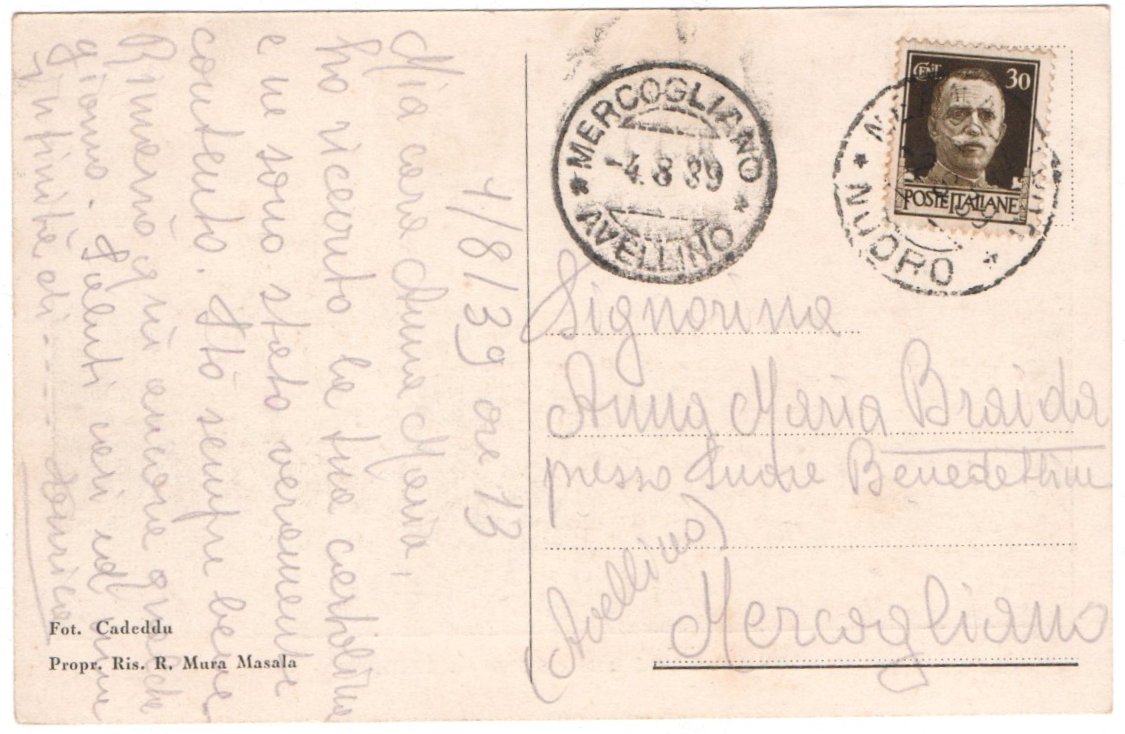 4/8/39 ore 13
Mia cara Anna Maria,
ho ricevuto la tua cartolina
e ne sono stato veramente
contento. Stò sempre bene
Rimarrò quì ancora qualche
giorno. Saluti cari ed
Infinità di
Fot. Cadeddu
Propr. Ris. R. Mura Masala
* MERCOGLIANO *
-4.8 39
AVELLINO
CENT. 30
POSTE ITALIANE
* NUORO *
Signorina
Anna Maria Braida
presso Suore Benedettine
(Avellino)
Mercogliano